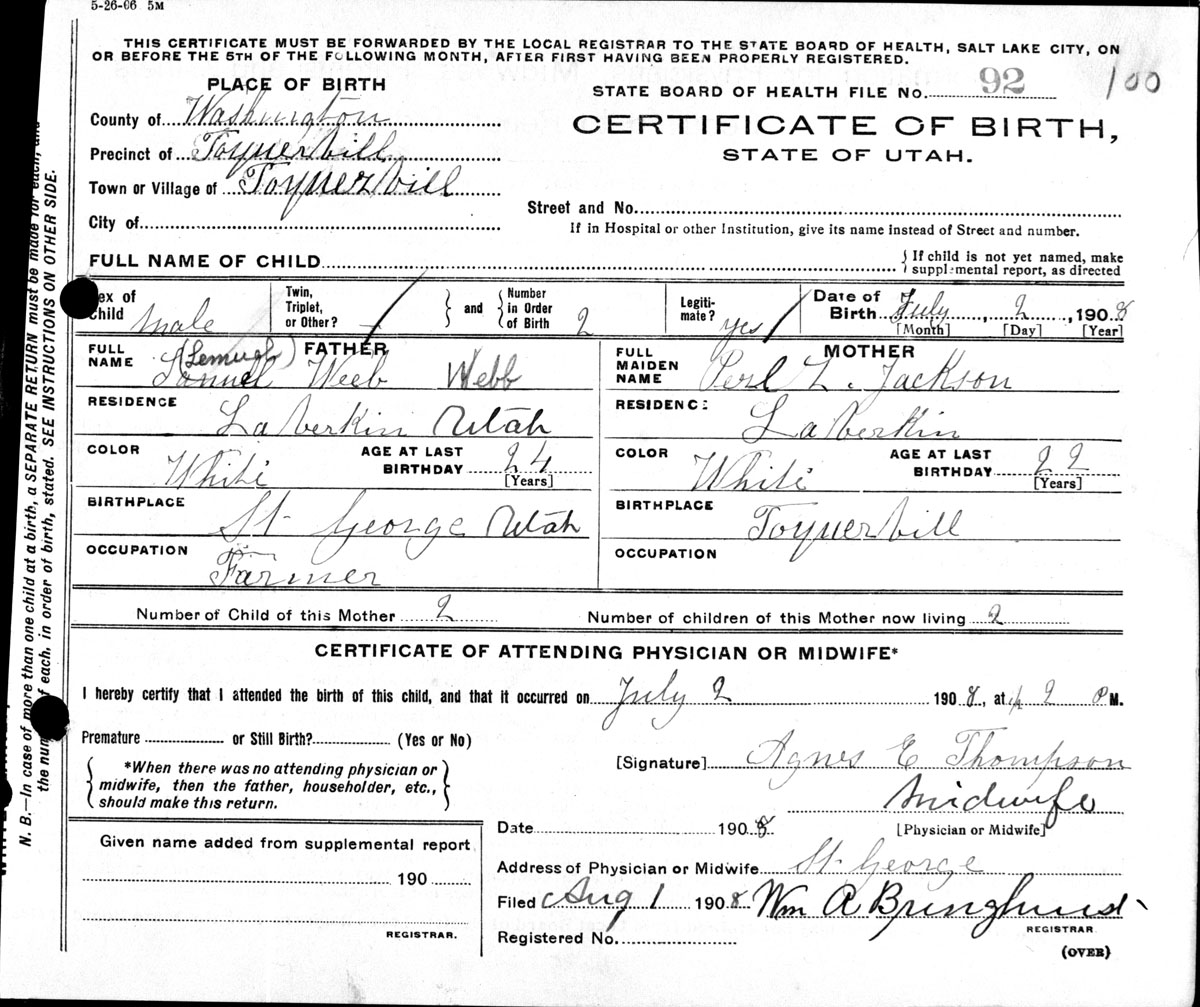 5-26-06 5M
THIS CERTIFICATE MUST BE FORWARDED BY THE LOCAL REGISTRAR TO THE STATE BOARD OF HEALTH, SALT LAKE CITY, ON
OR BEFORE THE 5TH OF THE FOLLOWING MONTH, AFTER FIRST HAVING BEEN PROPERLY REGISTERED.
PLACE OF BIRTH
STATE BOARD OF HEALTH FILE NO. 92 100
County of Washington
CERTIFICATE OF BIRTH,
STATE OF UTAH.
Precinct of Toquerbill
Town or Village of Toquerbill
City of
Street and No.
If in Hospital or other Institution, give its name instead of Street and number.
FULL NAME OF CHILD
{ If child is not yet named, make
supplemental report, as directed
Sex of Child male
Twin, Triplet, or Other? / and Number in Order of Birth 2
Legitimate? yes /
Date of Birth July, 2, 1908
[Month] [Day] [Year]
FATHER
FULL NAME (Lemuel) Samuel Weeb Webb
RESIDENCE La Verkin Utah
COLOR White
AGE AT LAST BIRTHDAY 24
[Years]
BIRTHPLACE St George Utah
OCCUPATION Farmer
MOTHER
FULL MAIDEN NAME Perl Z. Jackson
RESIDENCE La Verkin
COLOR White
AGE AT LAST BIRTHDAY 22
[Years]
BIRTHPLACE Toquerbill
OCCUPATION
Number of Child of this Mother 2 Number of children of this Mother now living 2
CERTIFICATE OF ATTENDING PHYSICIAN OR MIDWIFE*
I hereby certify that I attended the birth of this child, and that it occurred on July 2 1908, at 1/2 2 P M.
Premature or Still Birth? (Yes or No)
{ *When there was no attending physician or
midwife, then the father, householder, etc.,
should make this return. }
[Signature] Agnes E Thompson
Midwife
[Physician or Midwife]
Date 1908
Address of Physician or Midwife St George
Filed Aug 1 1908 Wm A Bringhurst
REGISTRAR
Registered No.
(OVER)
Given name added from supplemental report
190
REGISTRAR.
N. B.—In case of more than one child at a birth, a SEPARATE RETURN must be made for each, and
the number of each, in order of birth, stated. SEE INSTRUCTIONS ON OTHER SIDE.